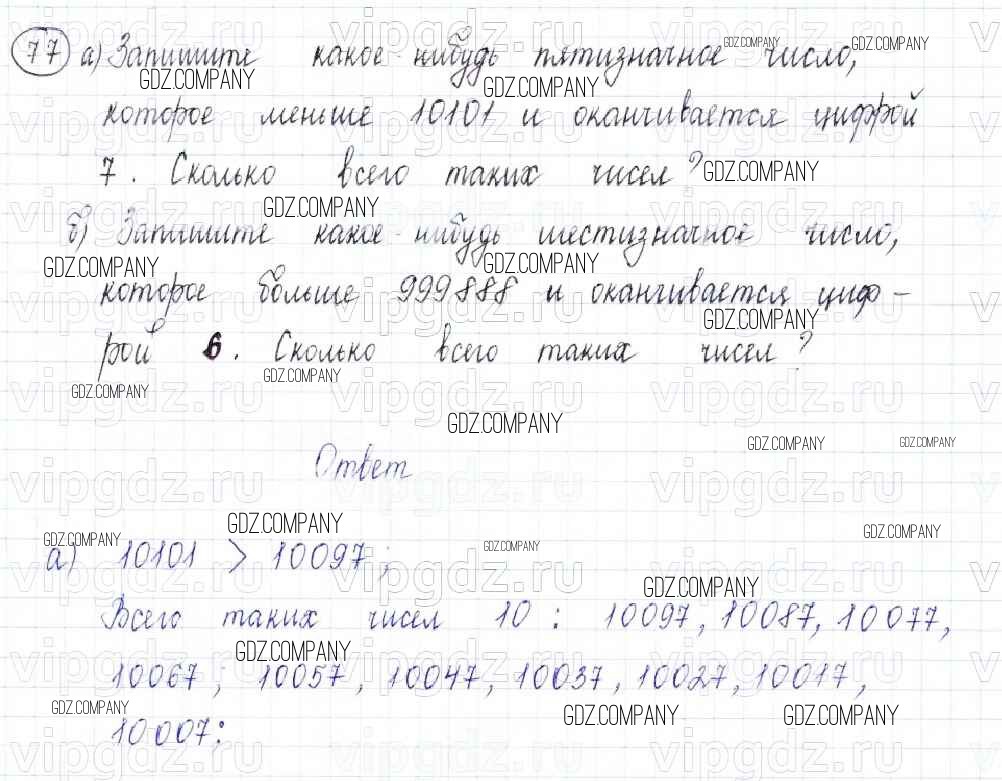 77 а) Запишите какое-нибудь пятизначное число,
которое меньше 10101 и оканчивается цифрой
7. Сколько всего таких чисел?
б) Запишите какое-нибудь шестизначное число,
которое больше 999888 и оканчивается циф-
рой 6. Сколько всего таких чисел?
Ответ
а) 10101 > 10097;
Всего таких чисел 10: 10097, 10087, 10077,
10067; 10057, 10047, 10037, 10027, 10017,
10007:
GDZ.COMPANY
vipgdz.ru